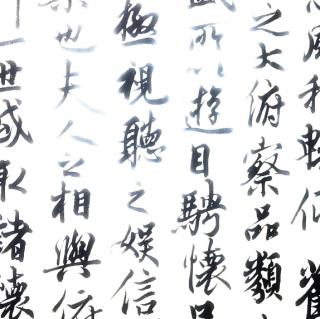 風和暢仰觀
之大俯察品類
盛所以遊目騁懷
極視聽之娛信
樂也夫人之相與俯
一世或取諸懷